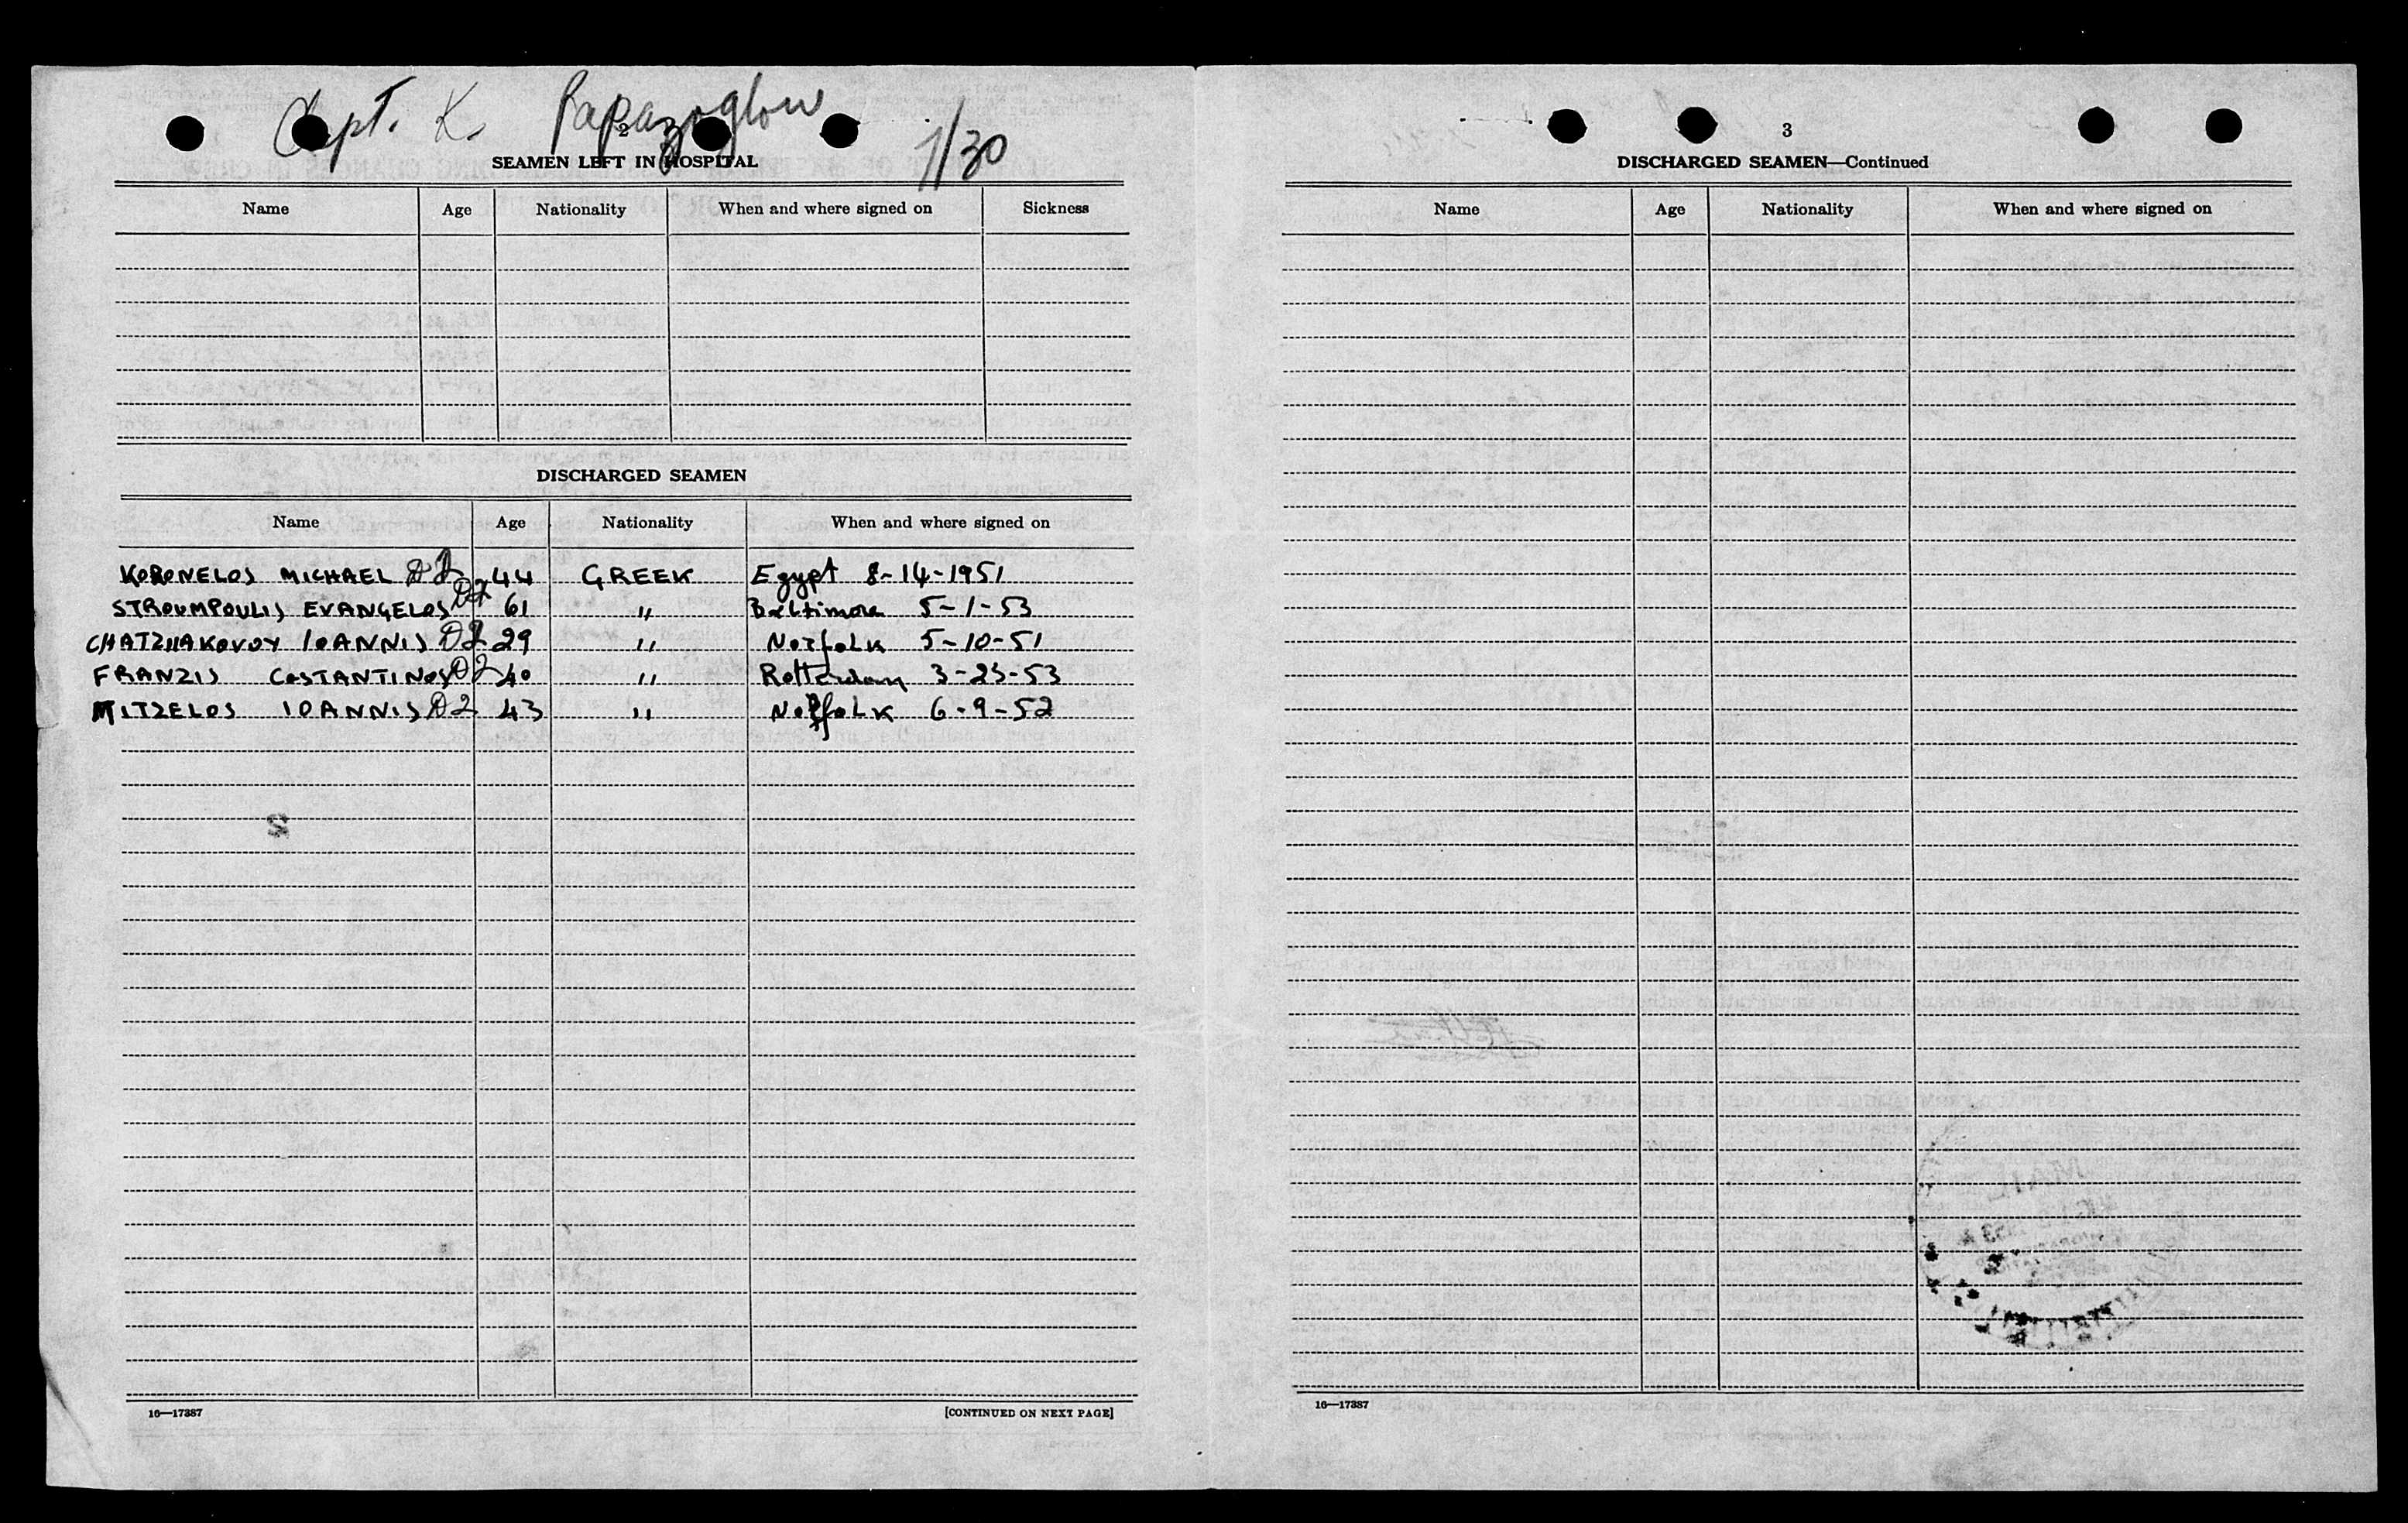 Capt. K. Papazoglou
2
1/30
SEAMEN LEFT IN HOSPITAL
Name Age Nationality When and where signed on Sickness
DISCHARGED SEAMEN
Name Age Nationality When and where signed on
KORONELOS MICHAEL D2 44 GREEK Egypt 8-14-1951
STROUMPOULIS EVANGELOS D2 61 " Baltimore 5-1-53
CHATZIIAKOVOY IOANNIS D2 29 " Norfolk 5-10-51
FRANZIS COSTANTINOS D2 40 " Rotterdam 3-23-53
MITZELOS IOANNIS D2 43 " Norfolk 6-9-52
16—17387 [CONTINUED ON NEXT PAGE]
3
DISCHARGED SEAMEN—Continued
Name Age Nationality When and where signed on
16—17387